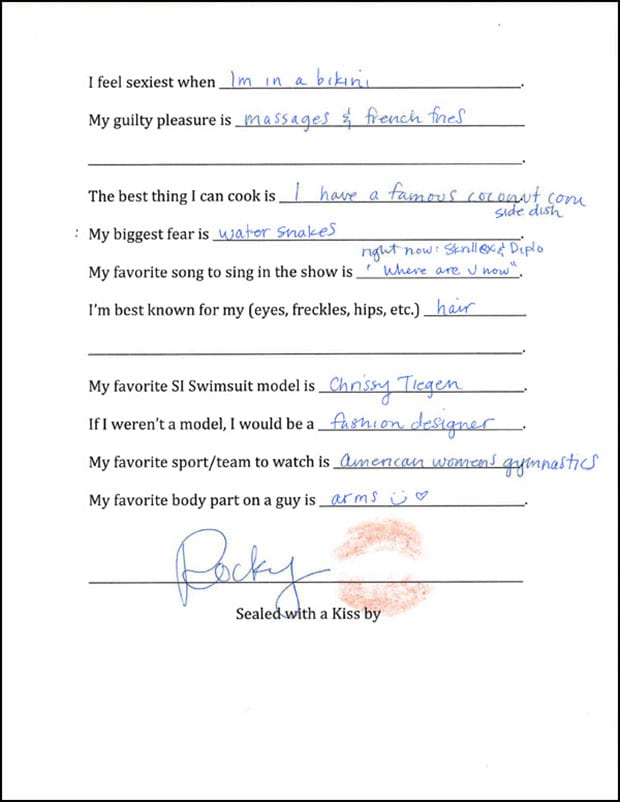 I feel sexiest when Im in a bikini.
My guilty pleasure is massages & french fries
.
The best thing I can cook is I have a famous coconut corn
side dish
: My biggest fear is water snakes.
right now: Skrillex & Diplo
My favorite song to sing in the show is "Where are U now".
I'm best known for my (eyes, freckles, hips, etc.) hair
.
My favorite SI Swimsuit model is Chrissy Tiegen.
If I weren't a model, I would be a fashion designer.
My favorite sport/team to watch is American womens gymnastics
My favorite body part on a guy is arms ☺ ♡.
Rocky
Sealed with a Kiss by